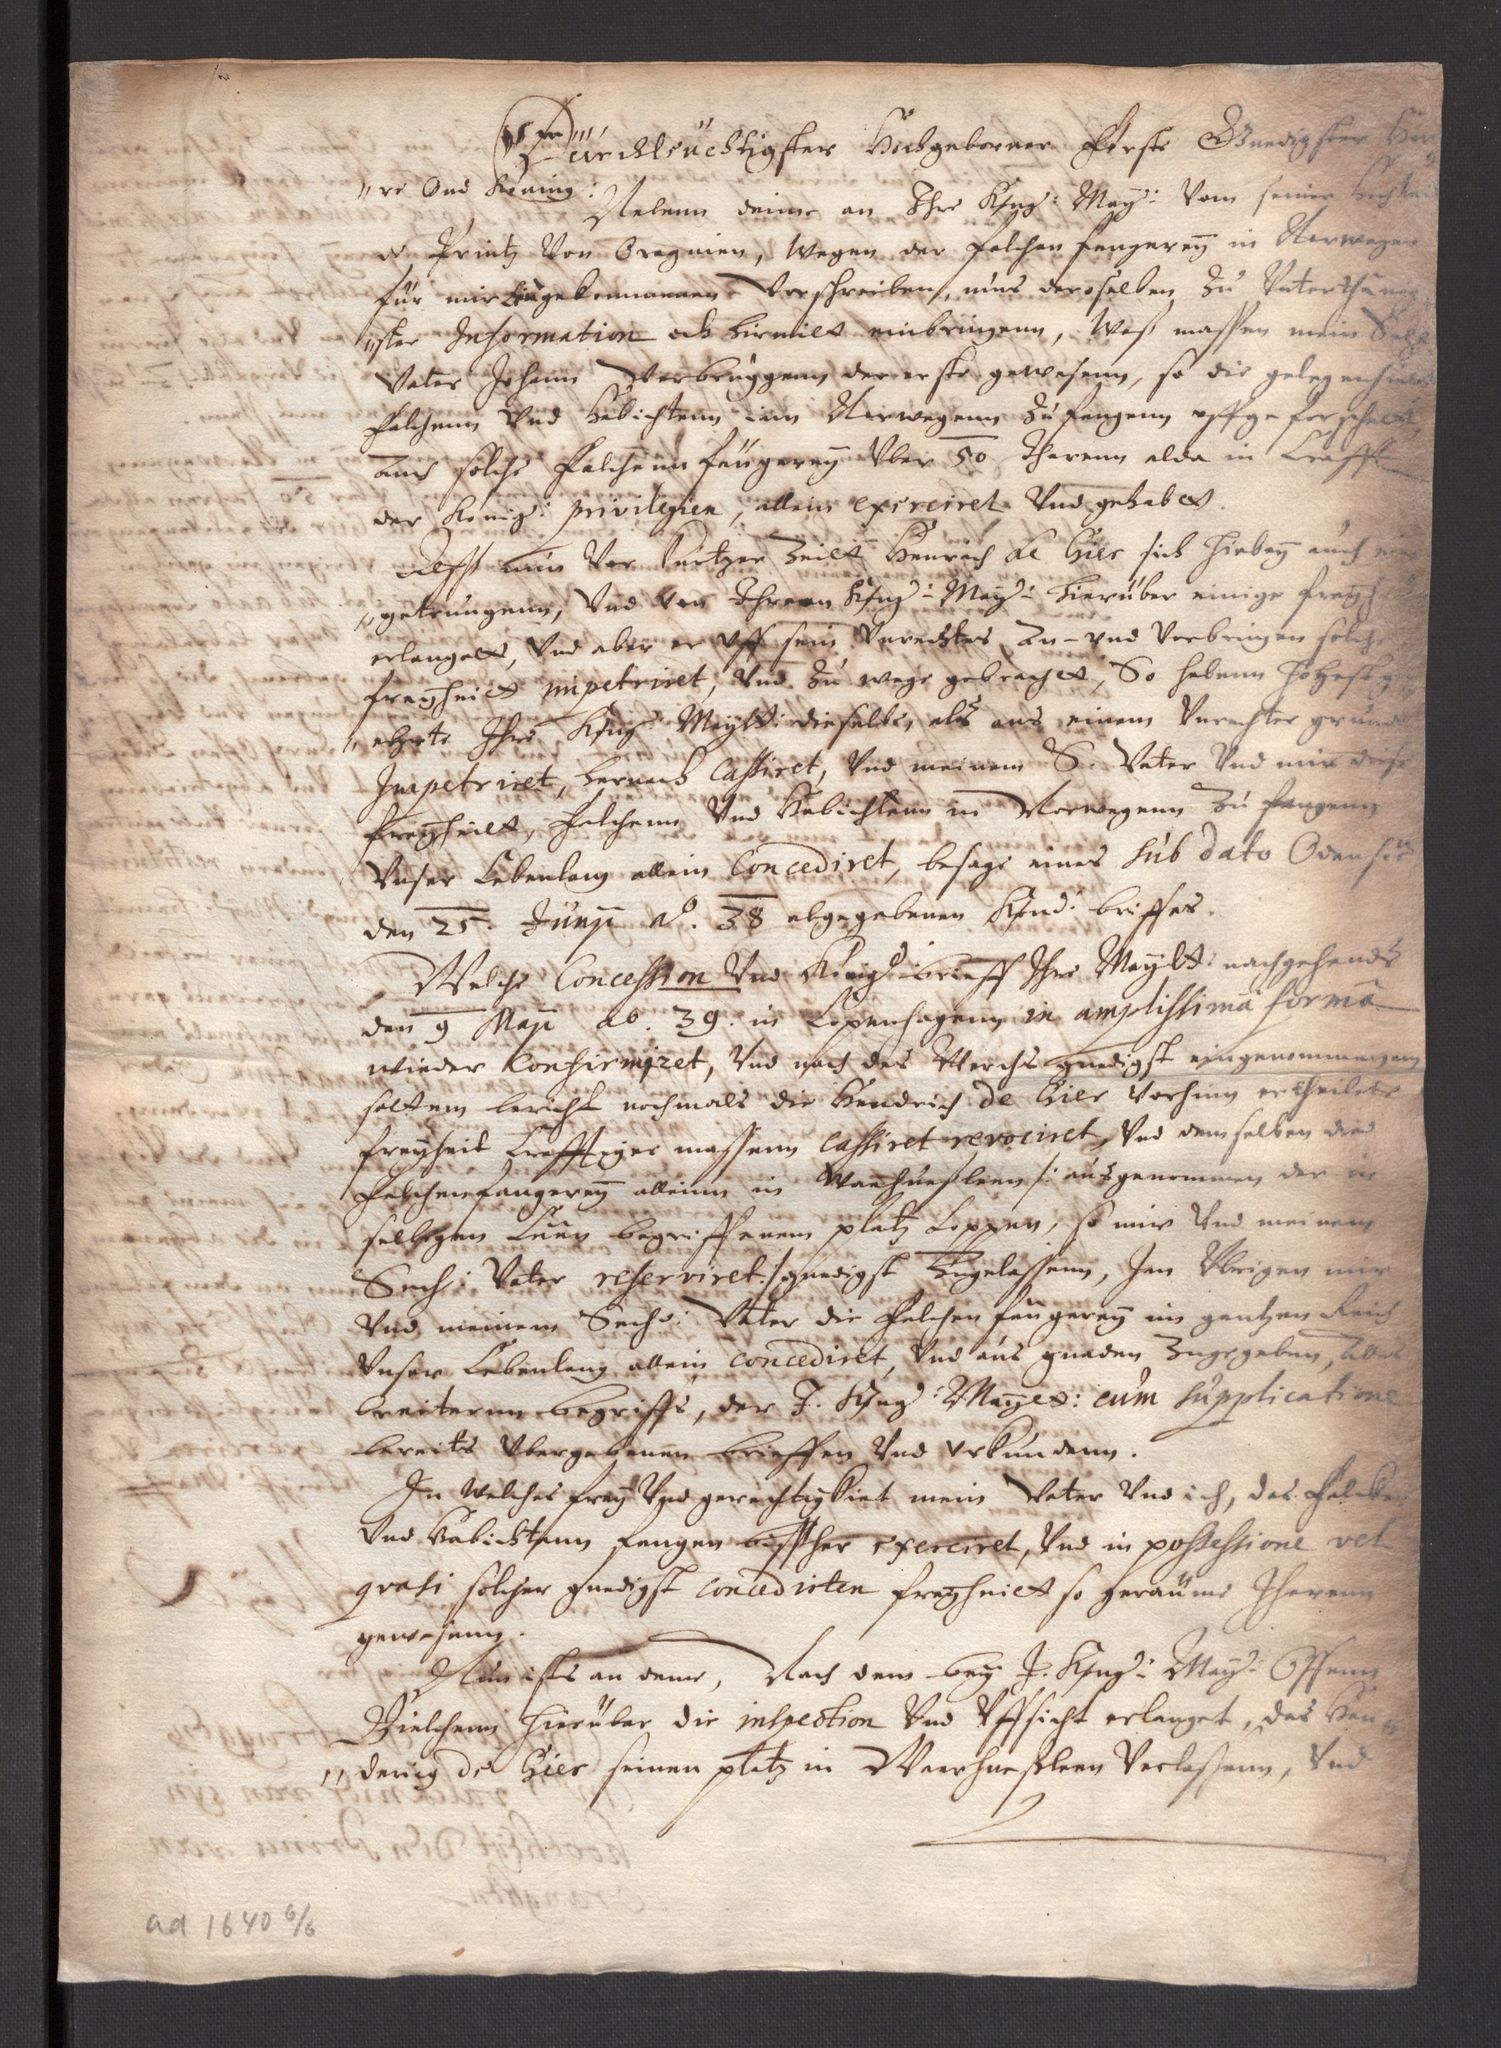 Dürchleüchtigster Hochgeborner Fürst Gnedigster Her
"re Vnd König:
Nebenn deme an Ihre Kön: May: Vom seiner Hochheit
d Printz Von Oragnien, Wegen der falcken fangereÿ in Norwegen
für mir eingekommenen Vorschreiben, mus deroselben zu Vnterthänig
"ster Information ich hiemitt einbringenn, Was massen mein Sehl.
Vater Johann Verbruggenn der erste gewesenn, so die gelegenheit
falckenn Vnd Habichtenn inn Norwegenn zu fangenn vffgeforschett
auch solche falckenn fängereÿ Vber 50 Iharenn alda in Krafft
der König: privilegien, allein exerciret Vnd gehabet.
Alß nun Vor kurtzer Zeitt Henrich de Hier sich hirbeÿ auch ein
"getrungenn, Vnd von Ihrenn Kön: May: hierüber einige freÿh
erlanget, Vnd aber er vff sein Vnrechtes An- vnd Vorbringen solche
freÿheitt impetriret, Vnd zu wege gebrachet, So habenn höhestge
"ehrte Ihre Kön: Maytt: dieselbe, als aus einem Vnrechten grunde
Impetriret, hernach cassiret, Vnd meinem S. Vater Vnd mir diese
freÿheitt, falckenn Vnd Habichtenn in Norwegenn zu fangenn
Vnser Lebenlang allein Concediret, besage eines sub dato Odensee
den 25. Junÿ Ao. 38 abgegebenen Kön: brieffes.
Welche Concession Vnd König: brieff Ihre Maytt: nachgehends
den 9 Maÿ ao. 39. in Copenhagenn in amplissima forma
wieder Confirmiret, Vnd nach des Wercks gnedigst eingenommenem
soltem bericht nochmals die Hendrich de Hier vorhinn ertheilete
freÿheit krefftiger massenn cassiret revociret, Vnd demselben die
falckenfangereÿ alleinn in Wardhuesleen /: ausgenommen der in
selbigen Leen begriffenem platz Loppen, so mir Vnd meinem
Seeh: Vater reserviret :/ gnedigst Zugelassenn, Im Vbrigen mir
Vnd meinem Seehl: Vater die falckenfangereÿ im gantzen Reich
Vnser Lebenlang allein concediret, Vnd aus gnaden Zugegeben, Alles
breiterm begriffs, der I. Kön: Mayet: cum supplicatione
bereits Vbergebenen brieffen Vnd Vrkundenn.
In welches freÿ Vnd gerechtigkeit mein Vater Vnd ich, das falcken
Vnd Habichtenn fangen bißher exerciret, Vnd in possessione vel
quasi solcher gnedigst concedirten freÿheitt so geraume Iharenn
gewesenn.
Nun ists an deme, Nach dem beÿ I. Kön: May: Offenn
Bielckenn hierüber die inspection Vnd Vffsicht erlanget, das Hen
"derig de Hier seinen platz in Waerhuesleen Verlassenn, Vnd
ad 1640 6/6